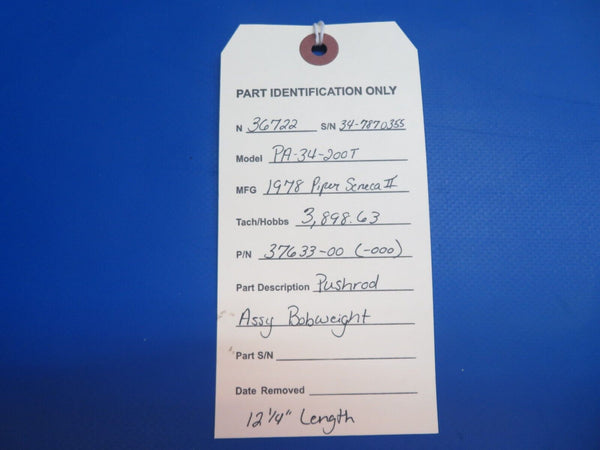 PART IDENTIFICATION ONLY
N 36722 S/N 34-7870355
Model PA-34-200T
MFG 1978 Piper Seneca II
Tach/Hobbs 3,898.63
P/N 37633-00 (-000)
Part Description Pushrod
Assy Bobweight
Part S/N
Date Removed
12 1/4" Length